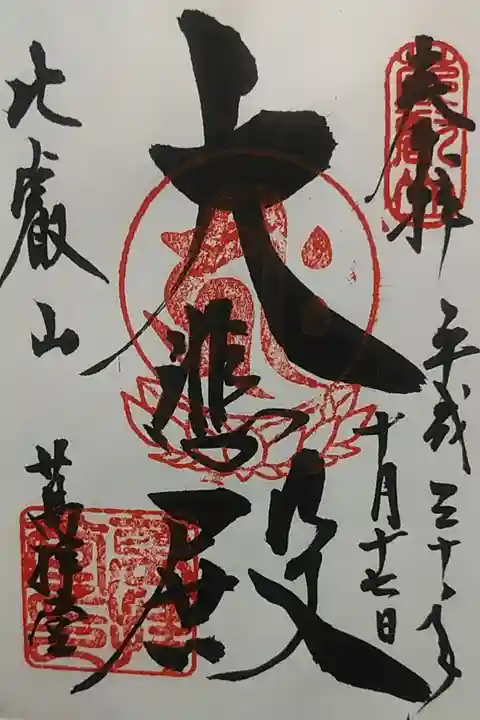 奉拝
平成三十年
十月十七日
大悲殿
比叡山
萬拝堂